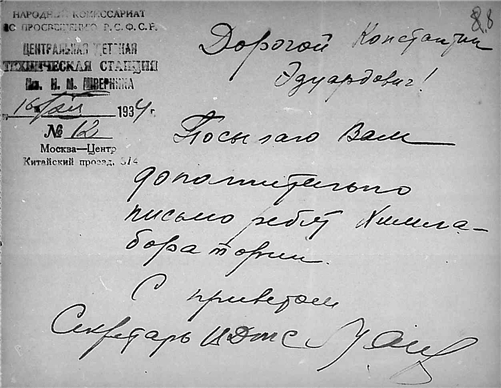 88
НАРОДНЫЙ КОМИССАРИАТ
ПО ПРОСВЕЩЕНИЮ Р.С.Ф.С.Р.
ЦЕНТРАЛЬНАЯ ДЕТСКАЯ
ТЕХНИЧЕСКАЯ СТАНЦИЯ
Им. Н. М. ШВЕРНИКА
16/ 1934г.
№ 12
Москва—Центр
Китайский проезд, 3/4
Дорогой Константин
Эдуардович!
Посылаю Вам
дополнительно
письмо ребят Химла-
боратории.
С приветом
Секретарь ЦДТС